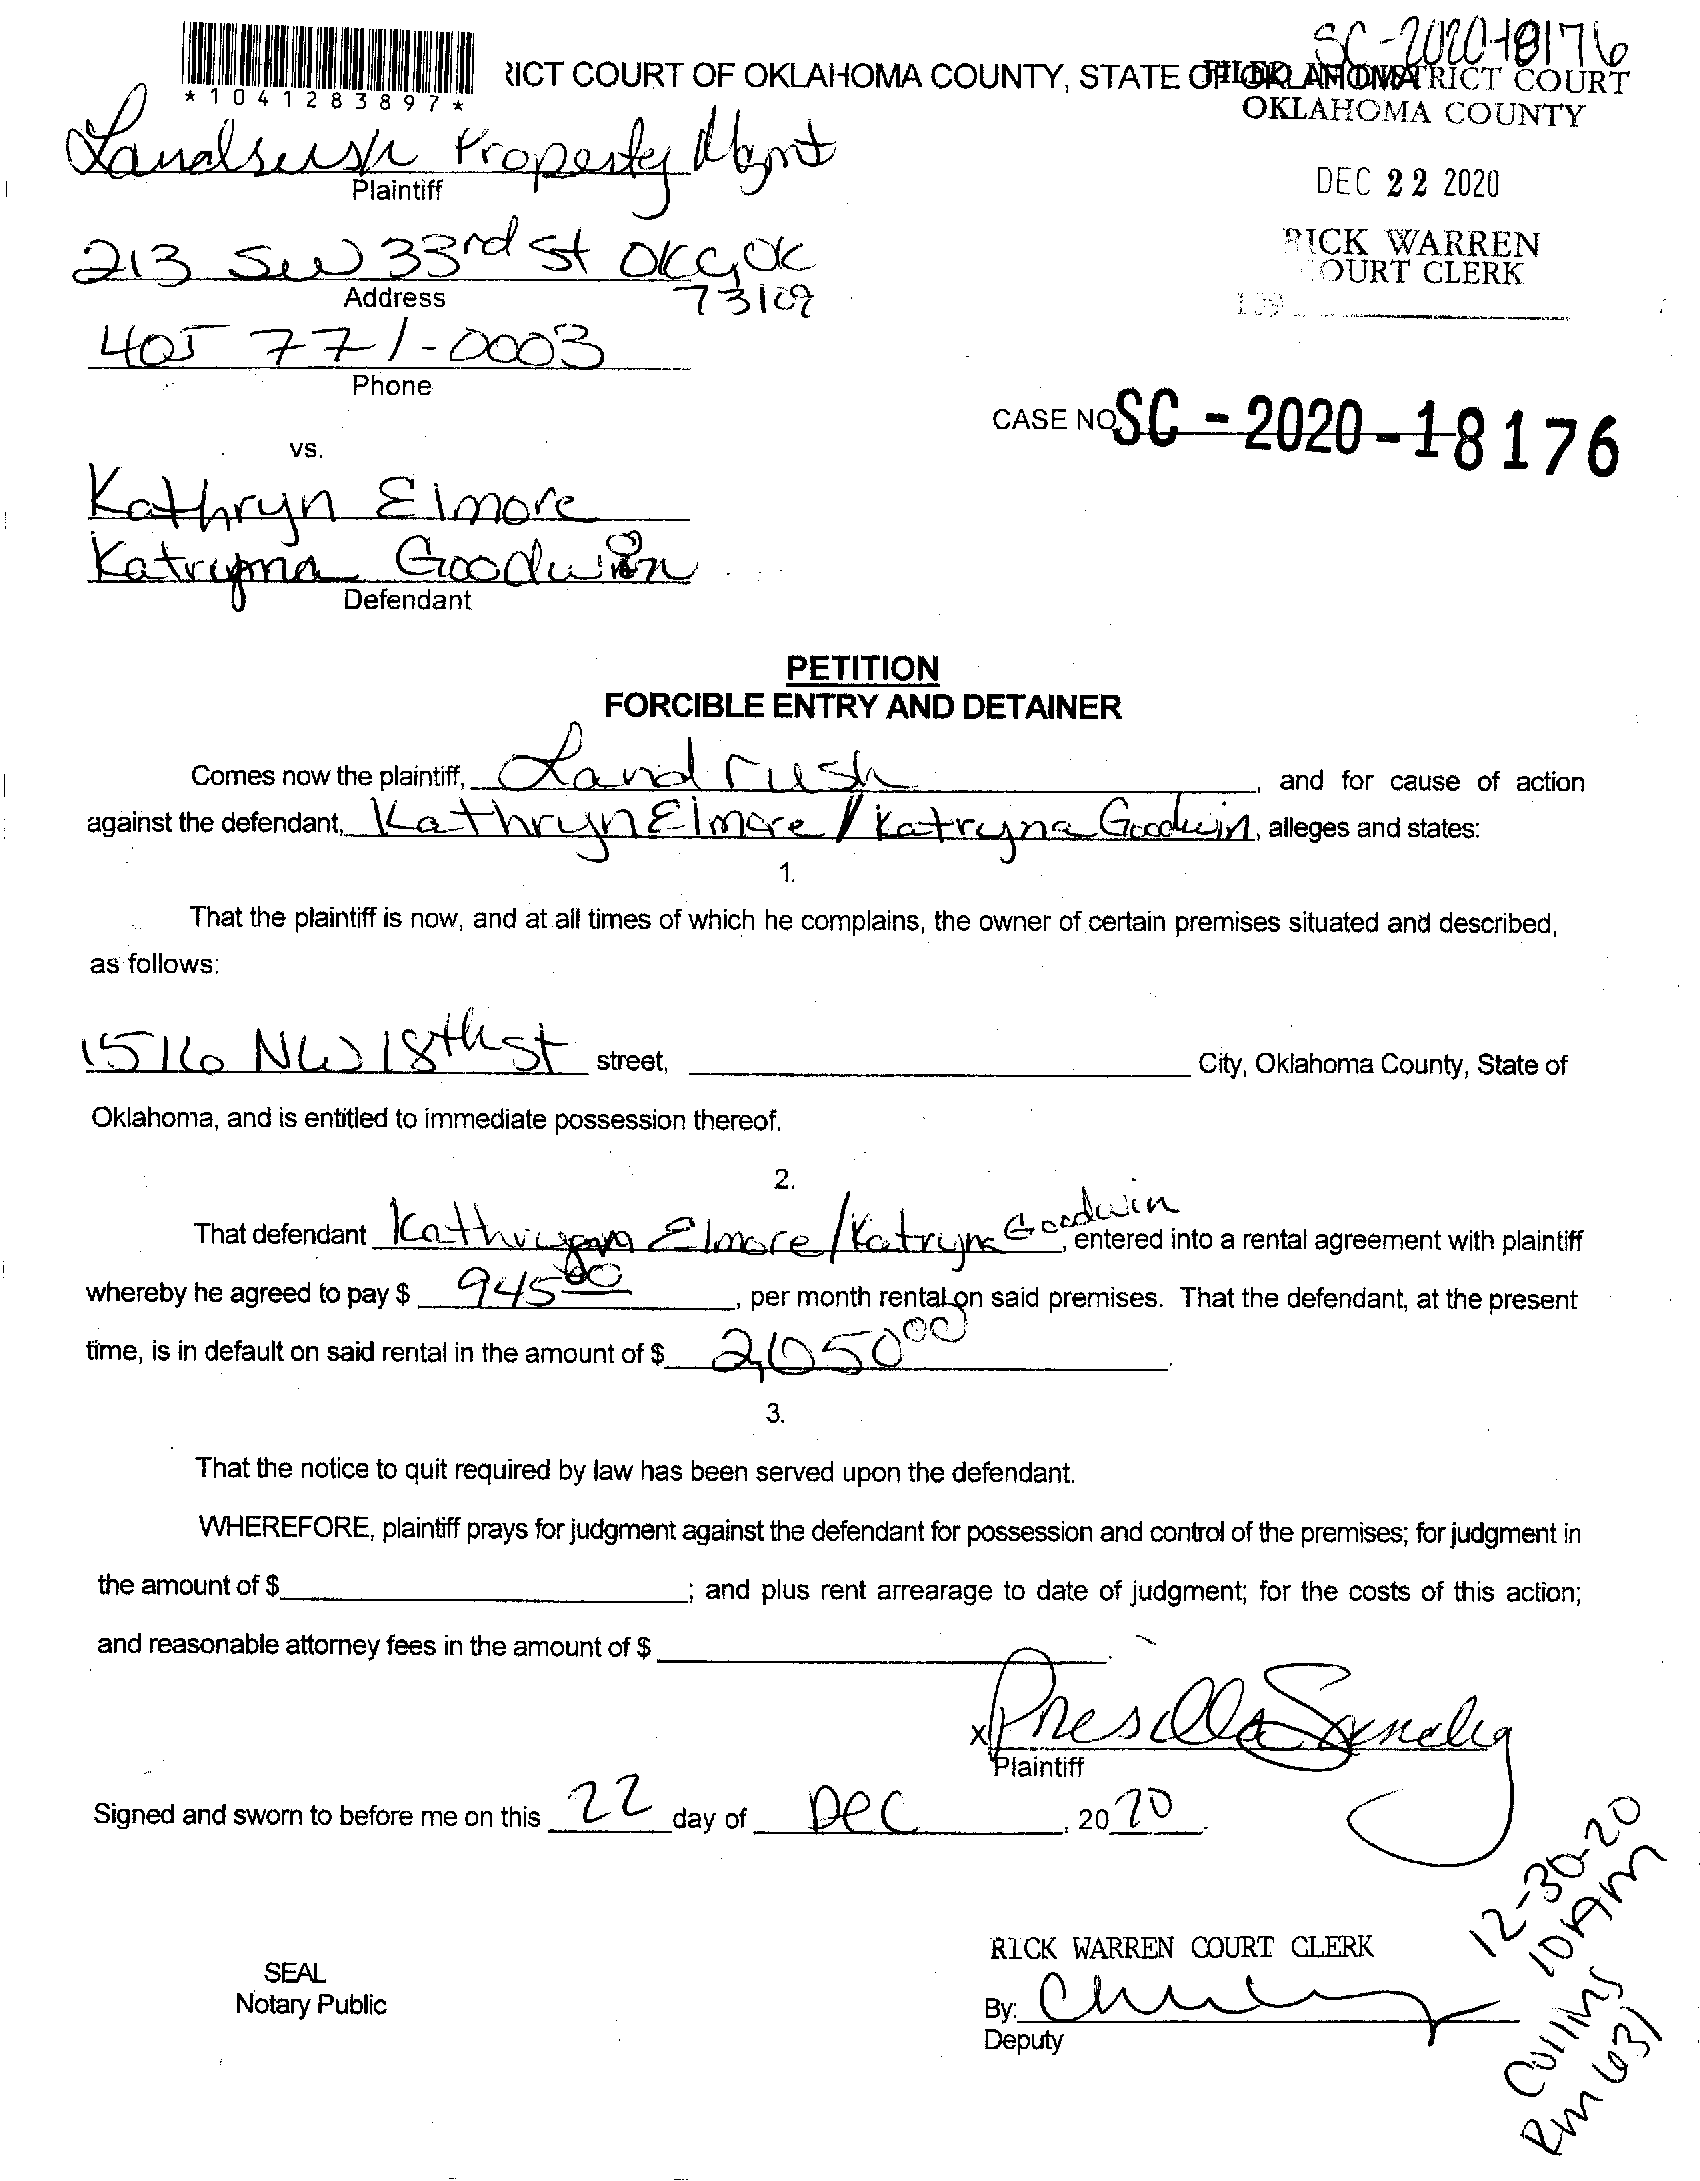 SC-2020-18176
RICT COURT OF OKLAHOMA COUNTY, STATE OF OKLAHOMA
FILED IN DISTRICT COURT
OKLAHOMA COUNTY
*1041283897*
Landrush Property Mgmt
Plaintiff
DEC 22 2020
213 SW 33rd St OKC, OK
73109
Address
RICK WARREN
COURT CLERK
139
405 771-0003
Phone
CASE NO. SC-2020-18176
vs.
Kathryn Elmore
Katryna Goodwin
Defendant
PETITION
FORCIBLE ENTRY AND DETAINER
Comes now the plaintiff, Landrush, and for cause of action
against the defendant, Kathryn Elmore / Katryna Goodwin, alleges and states:
1.
That the plaintiff is now, and at all times of which he complains, the owner of certain premises situated and described,
as follows:
1516 NW 18th St street, City, Oklahoma County, State of
Oklahoma, and is entitled to immediate possession thereof.
2.
That defendant Elmore/Katryna Goodwin, entered into a rental agreement with plaintiff
whereby he agreed to pay $ 945.00, per month rental on said premises. That the defendant, at the present
time, is in default on said rental in the amount of $
3.
That the notice to quit required by law has been served upon the defendant.
WHEREFORE, plaintiff prays for judgment against the defendant for possession and control of the premises; for judgment in
the amount of $ ; and plus rent arrearage to date of judgment; for the costs of this action;
and reasonable attorney fees in the amount of $ .
x
Plaintiff
Signed and sworn to before me on this 22 day of Dec, 2020.
12-30-20
10AM
Collins
Rm 631
RICK WARREN COURT CLERK
SEAL
Notary Public
By:
Deputy